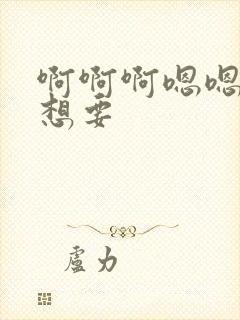 啊啊啊嗯嗯
想要
盧力